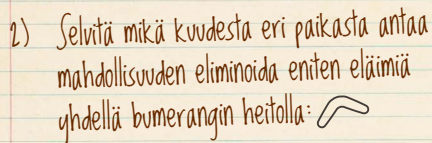 2) Selvitä mikä kuudesta eri paikasta antaa
mahdollisuuden eliminoida eniten eläimiä
yhdellä bumerangin heitolla: